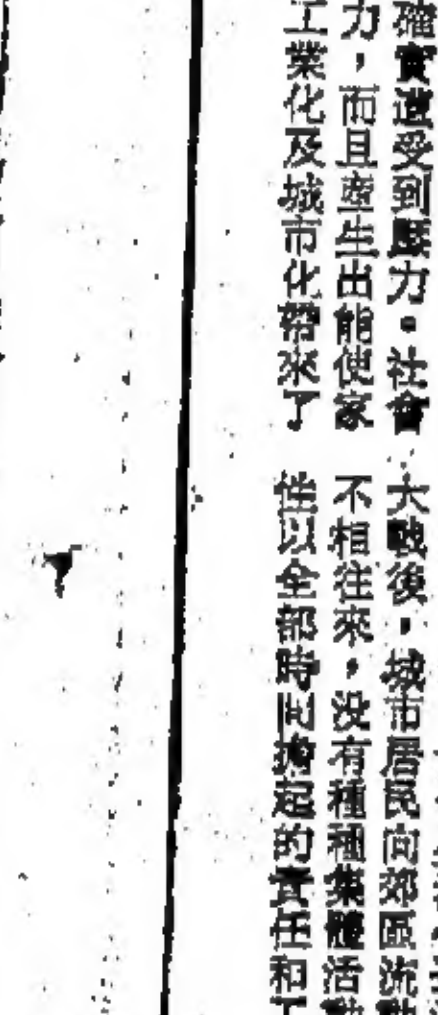 確實遭受到壓力。社會
力，而且產生出能使家
工業化及城市化帶來了
大戰後，城市居民向郊區流動
不相往來，没有種種集體活動
性以全部時間擔起的責任和